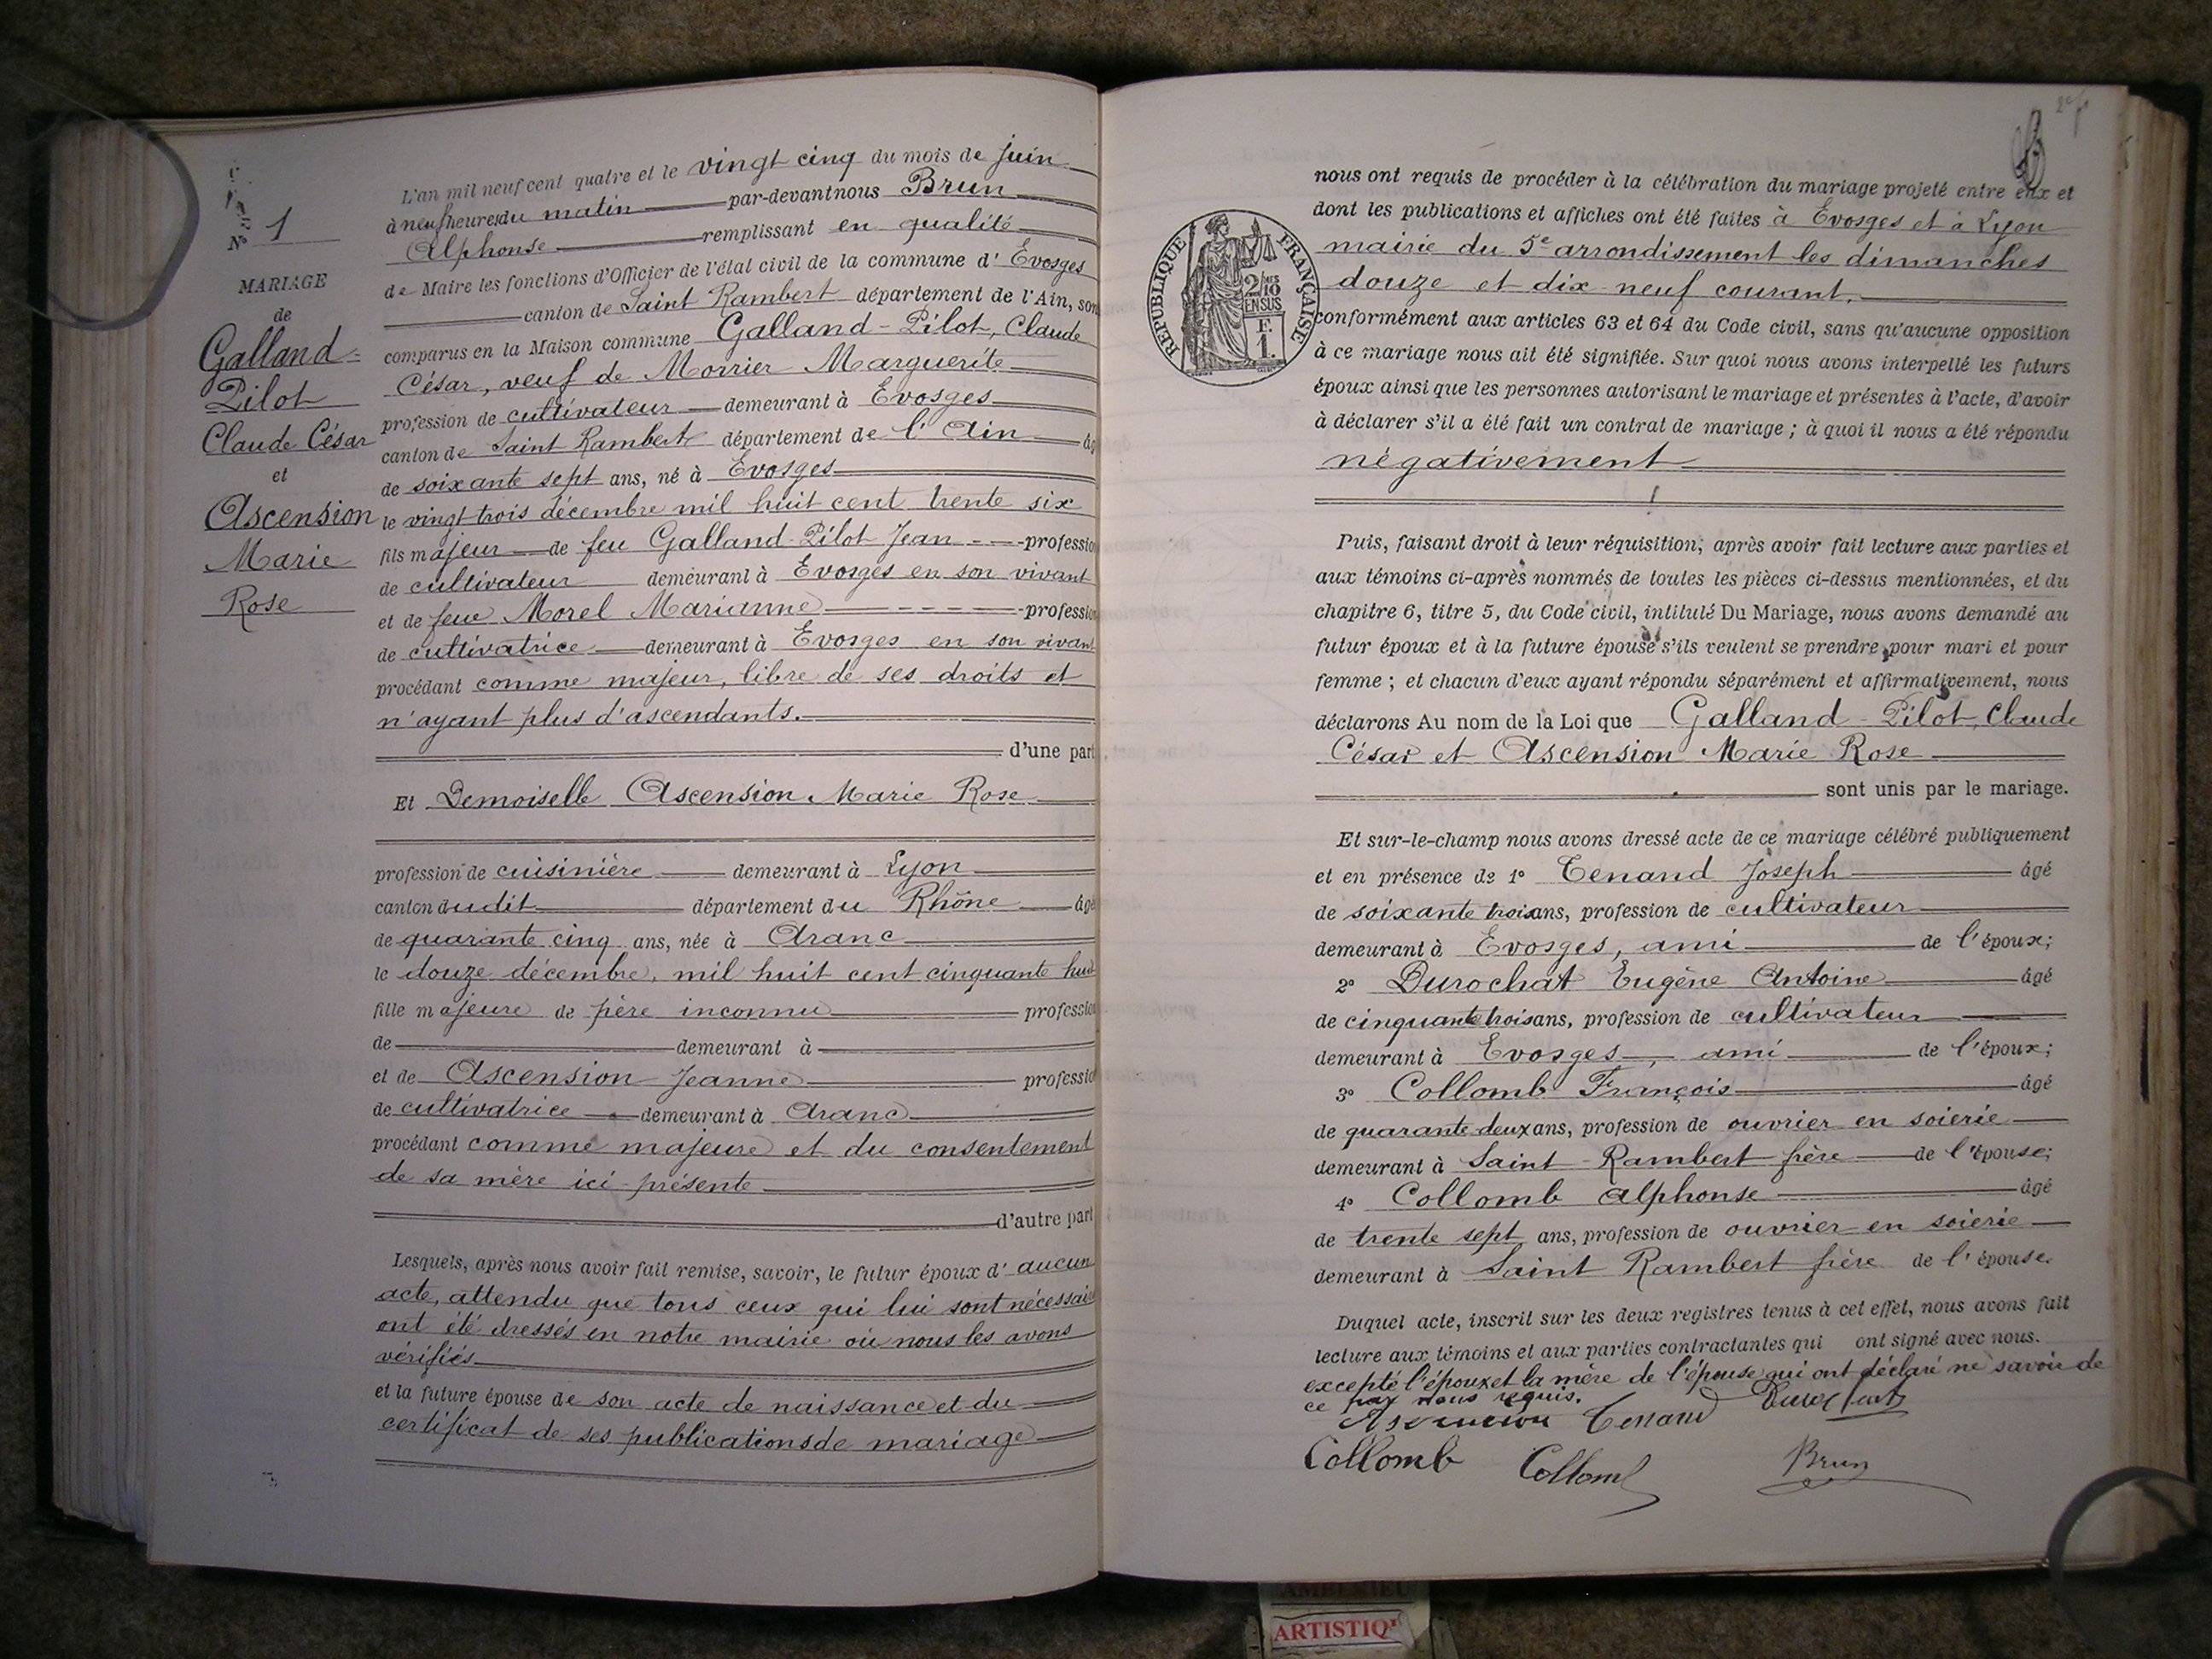 N° 1
MARIAGE
de
Galland-
Pilot
Claude César
et
Ascension
Marie
Rose
L'an mil neuf cent quatre et le vingt cinq du mois de juin
à neuf heures du matin par-devant nous Brun
Alphonse remplissant en qualité
de Maire les fonctions d'Officier de l'état civil de la commune d'Evosges
canton de Saint Rambert département de l'Ain, son
comparus en la Maison commune Galland-Pilot, Claude
César, veuf de Morrier Marguerite
profession de cultivateur demeurant à Evosges
canton de Saint Rambert département de l'Ain âg
de soixante sept ans, né à Evosges
le vingt-trois décembre mil huit cent trente six
fils majeur de feu Galland-Pilot Jean professio
de cultivateur demeurant à Evosges en son vivant
et de feue Morel Marianne profession
de cultivatrice demeurant à Evosges en son vivant
procédant comme majeur, libre de ses droits et
n'ayant plus d'ascendants.
d'une part
Et Demoiselle Ascension Marie Rose
profession de cuisinière demeurant à Lyon
canton dudit département du Rhône âgé
de quarante cinq ans, née à Aranc
le douze décembre, mil huit cent cinquante huit
fille majeure de père inconnu profession
de demeurant à
et de Ascension Jeanne professio
de cultivatrice demeurant à Aranc
procédant comme majeure et du consentement
de sa mère ici présente
d'autre part
Lesquels, après nous avoir fait remise, savoir, le futur époux d'aucun
acte, attendu que tous ceux qui lui sont nécessai
ont été dressés en notre mairie où nous les avons
vérifiés
et la future épouse de son acte de naissance et du
certificat de ses publications de mariage
RÉPUBLIQUE FRANÇAISE
2/10
EN SUS
F.
1.
nous ont requis de procéder à la célébration du mariage projeté entre eux et
dont les publications et affiches ont été faites à Evosges et à Lyon
mairie du 5e arrondissement les dimanches
douze et dix-neuf courant.
conformément aux articles 63 et 64 du Code civil, sans qu'aucune opposition
à ce mariage nous ait été signifiée. Sur quoi nous avons interpellé les futurs
époux ainsi que les personnes autorisant le mariage et présentes à l'acte, d'avoir
à déclarer s'il a été fait un contrat de mariage ; à quoi il nous a été répondu
négativement
Puis, faisant droit à leur réquisition, après avoir fait lecture aux parties et
aux témoins ci-après nommés de toutes les pièces ci-dessus mentionnées, et du
chapitre 6, titre 5, du Code civil, intitulé Du Mariage, nous avons demandé au
futur époux et à la future épouse s'ils veulent se prendre pour mari et pour
femme ; et chacun d'eux ayant répondu séparément et affirmativement, nous
déclarons Au nom de la Loi que Galland-Pilot, Claude
César et Ascension Marie Rose
sont unis par le mariage.
Et sur-le-champ nous avons dressé acte de ce mariage célébré publiquement
et en présence de 1° Tenand Joseph âgé
de soixante trois ans, profession de cultivateur
demeurant à Evosges, ami de l'époux;
2° Durochat Eugène Antoine âgé
de cinquante trois ans, profession de cultivateur
demeurant à Evosges, ami de l'époux;
3° Collomb François âgé
de quarante-deux ans, profession de ouvrier en soierie
demeurant à Saint-Rambert frère de l'épouse;
4° Collomb Alphonse âgé
de trente sept ans, profession de ouvrier en soierie
demeurant à Saint Rambert frère de l'épouse.
Duquel acte, inscrit sur les deux registres tenus à cet effet, nous avons fait
lecture aux témoins et aux parties contractantes qui ont signé avec nous.
excepté l'époux et la mère de l'épouse qui ont déclaré ne savoir de
ce par nous requis.
Ascension Tenand Durochat
Collomb Collomb Brun
AMBERIEU
ARTISTIQ